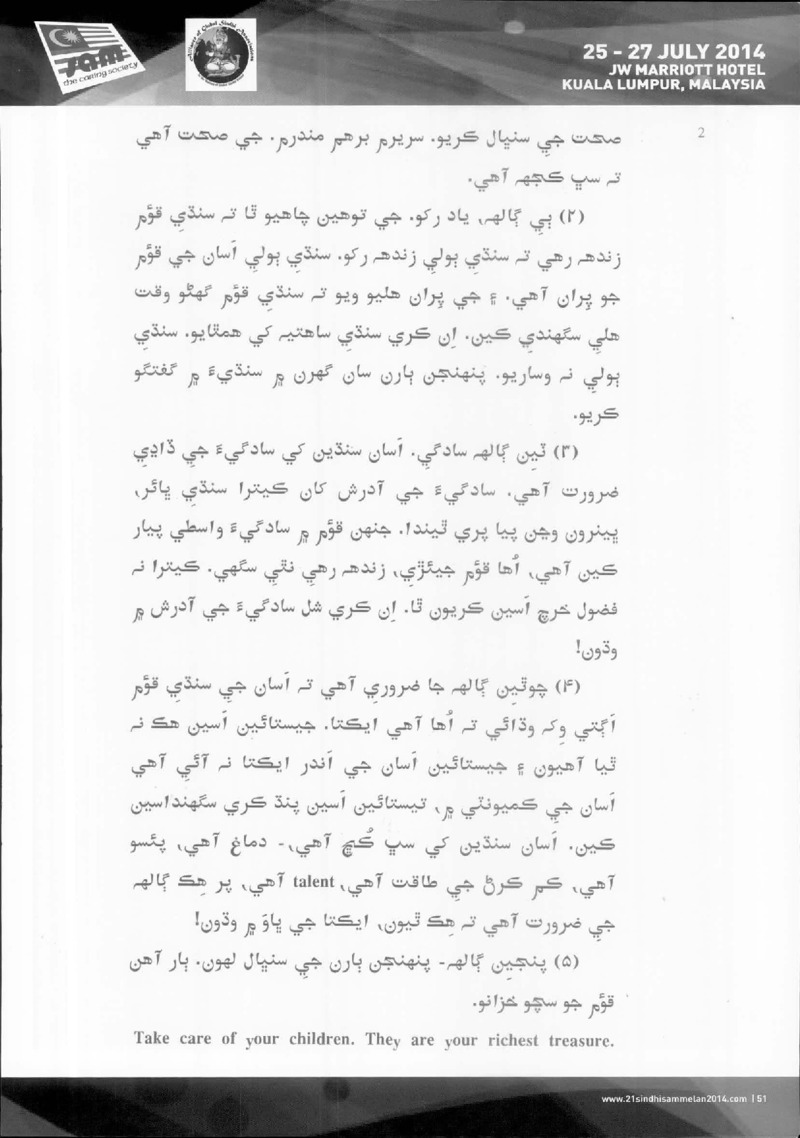 the caring society
Alliance of Global Sindhi Associations
25 - 27 JULY 2014
JW MARRIOTT HOTEL
KUALA LUMPUR, MALAYSIA
2
صحت جي سنڀال ڪريو. سريرم برهم مندرم. جي صحت آهي
تہ سڀ ڪجهہ آهي.
(۲) ٻي ڳالهہ، ياد رکو. جي توهين چاهيو ٿا تہ سنڌي قؤم
زندهہ رهي تہ سنڌي ٻولي زندهہ رکو. سنڌي ٻولي اَسان جي قؤم
جو پِران آهي. ۽ جي پِران هليو ويو تہ سنڌي قؤم گهڻو وقت
هلي سگهندي ڪين. اِن ڪري سنڌي ساهتيہ کي همٿايو. سنڌي
ٻولي نہ وساريو. پنهنجن ٻارن سان گهرن ۾ سنڌيءَ ۾ گفتگو
ڪريو.
(۳) ٽين ڳالهہ سادگي. اَسان سنڌين کي سادگيءَ جي ڏاڍي
ضرورت آهي. سادگيءَ جي آدرش کان ڪيترا سنڌي ڀائر،
ڀينرون وڃن پيا پري ٿيندا. جنهن قؤم ۾ سادگيءَ واسطي پيار
ڪين آهي، اُها قؤم جيئڙي، زندهہ رهي نٿي سگهي. ڪيترا نہ
فضول خرچ اَسين ڪريون ٿا. اِن ڪري شل سادگيءَ جي آدرش ۾
وڌون!
(۴) چوٿين ڳالهہ جا ضروري آهي تہ اَسان جي سنڌي قؤم
اَڳتي وِکہ وڌائي تہ اُها آهي ايڪتا. جيستائين اَسين هڪ نہ
ٿيا آهيون ۽ جيستائين اَسان جي اَندر ايڪتا نہ آئي آهي
اَسان جي ڪميونٽي ۾، تيستائين اَسين پنڌ ڪري سگهنداسين
ڪين. اَسان سنڌين کي سڀ ڪُڇ آهي،- دماغ آهي، پئسو
آهي، ڪم ڪرڻ جي طاقت آهي، talent آهي، پر هِڪ ڳالهہ
جي ضرورت آهي تہ هِڪ ٿيون، ايڪتا جي ڀاوَ ۾ وڌون!
(۵) پنجين ڳالهہ- پنهنجن ٻارن جي سنڀال لهون. ٻار آهن
قؤم جو سچو خزانو.
Take care of your children. They are your richest treasure.
www.21sindhisammelan2014.com | 51